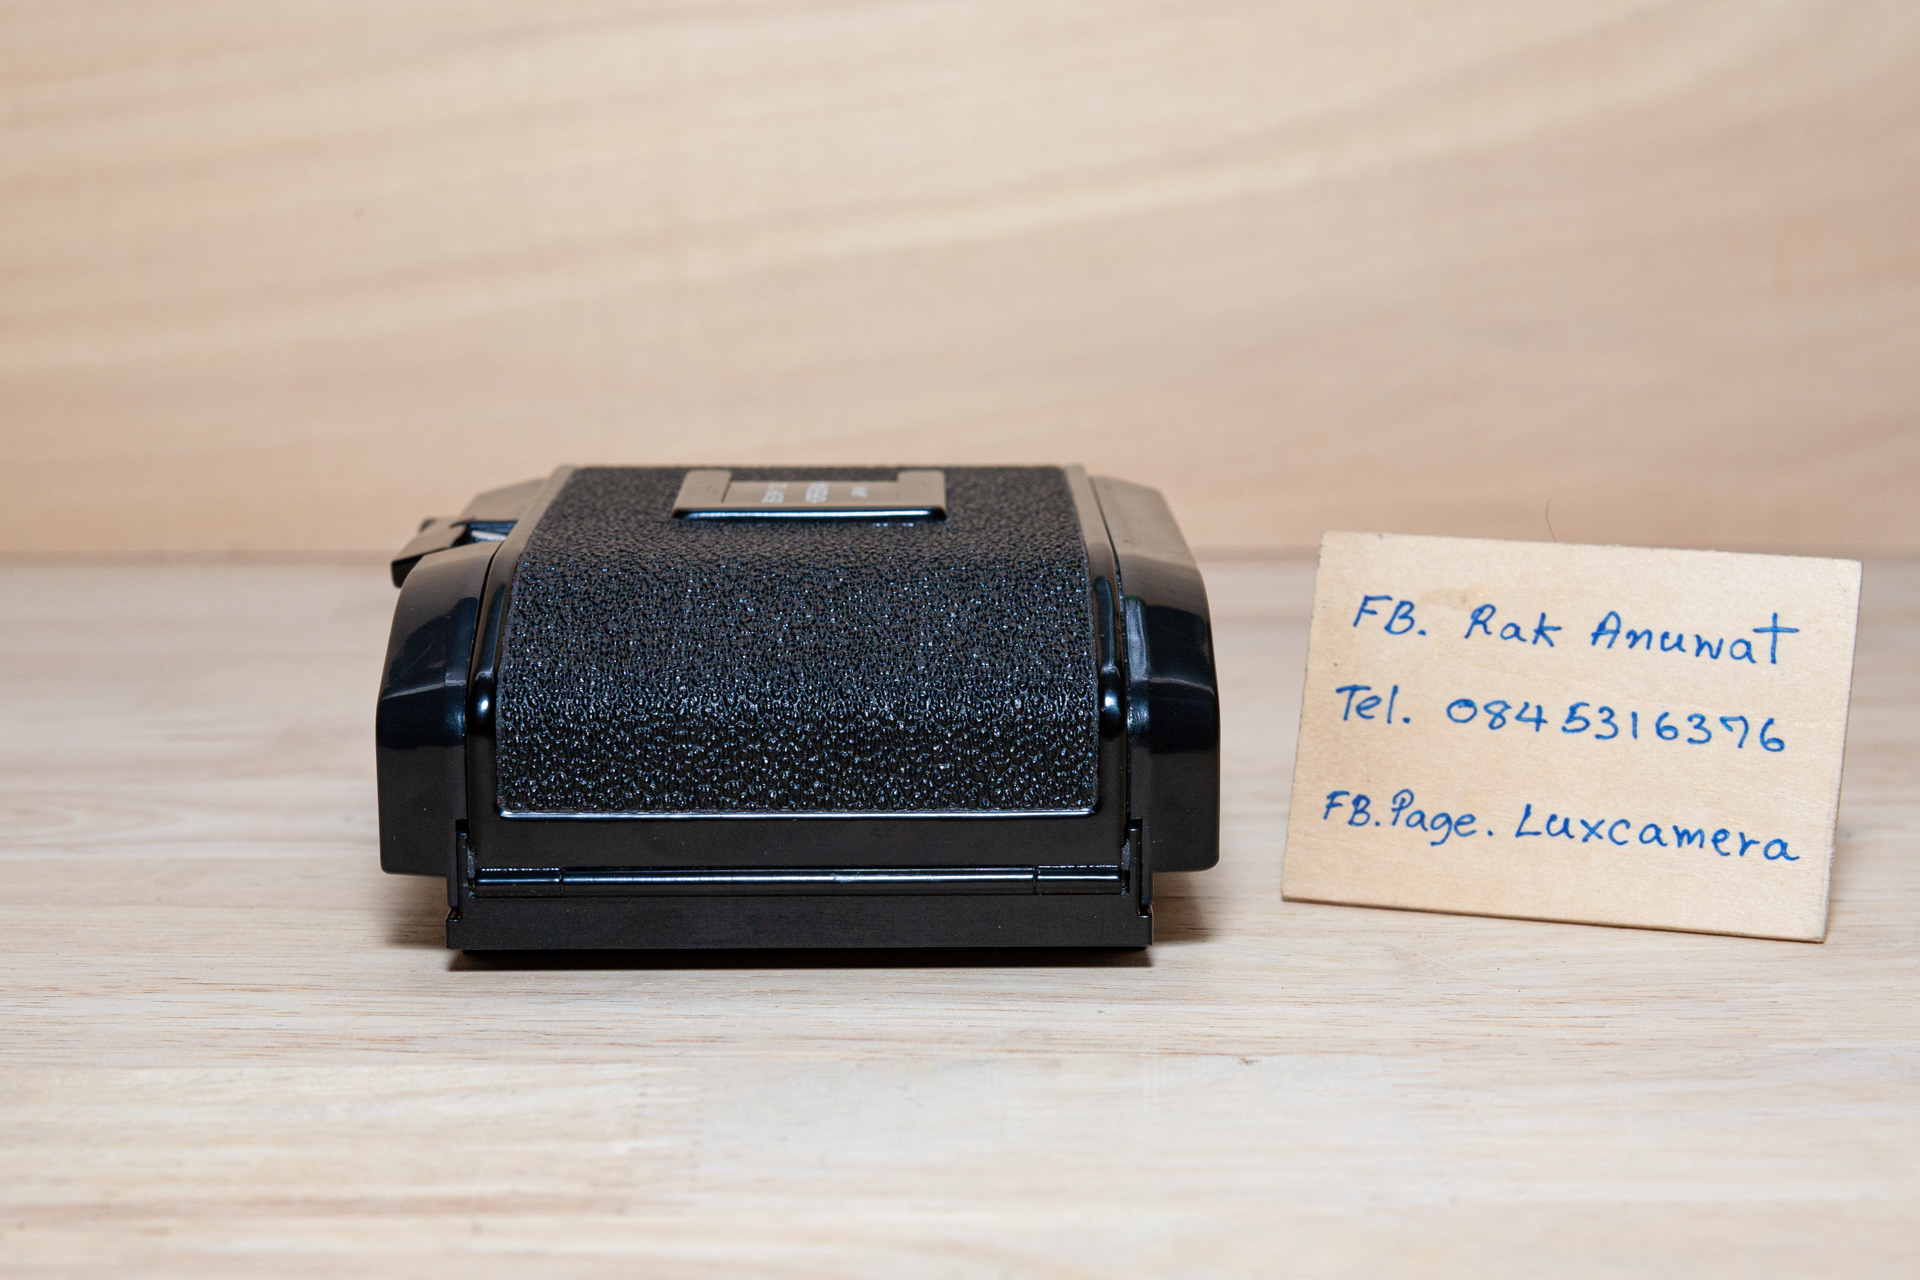 FB. Rak Anuwat
Tel. 0845316376
FB.Page. Luxcamera